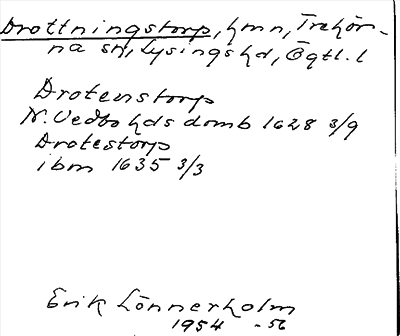 Drottningstorp, hmn, Trehör-
na sn, Lysings hd, Ögtl. l
Drotenstorp
N. Vedbo hds domb 1628 3/9
Drotestorp
ibm 1635 3/3
Erik Lönnerholm
1954 - 56